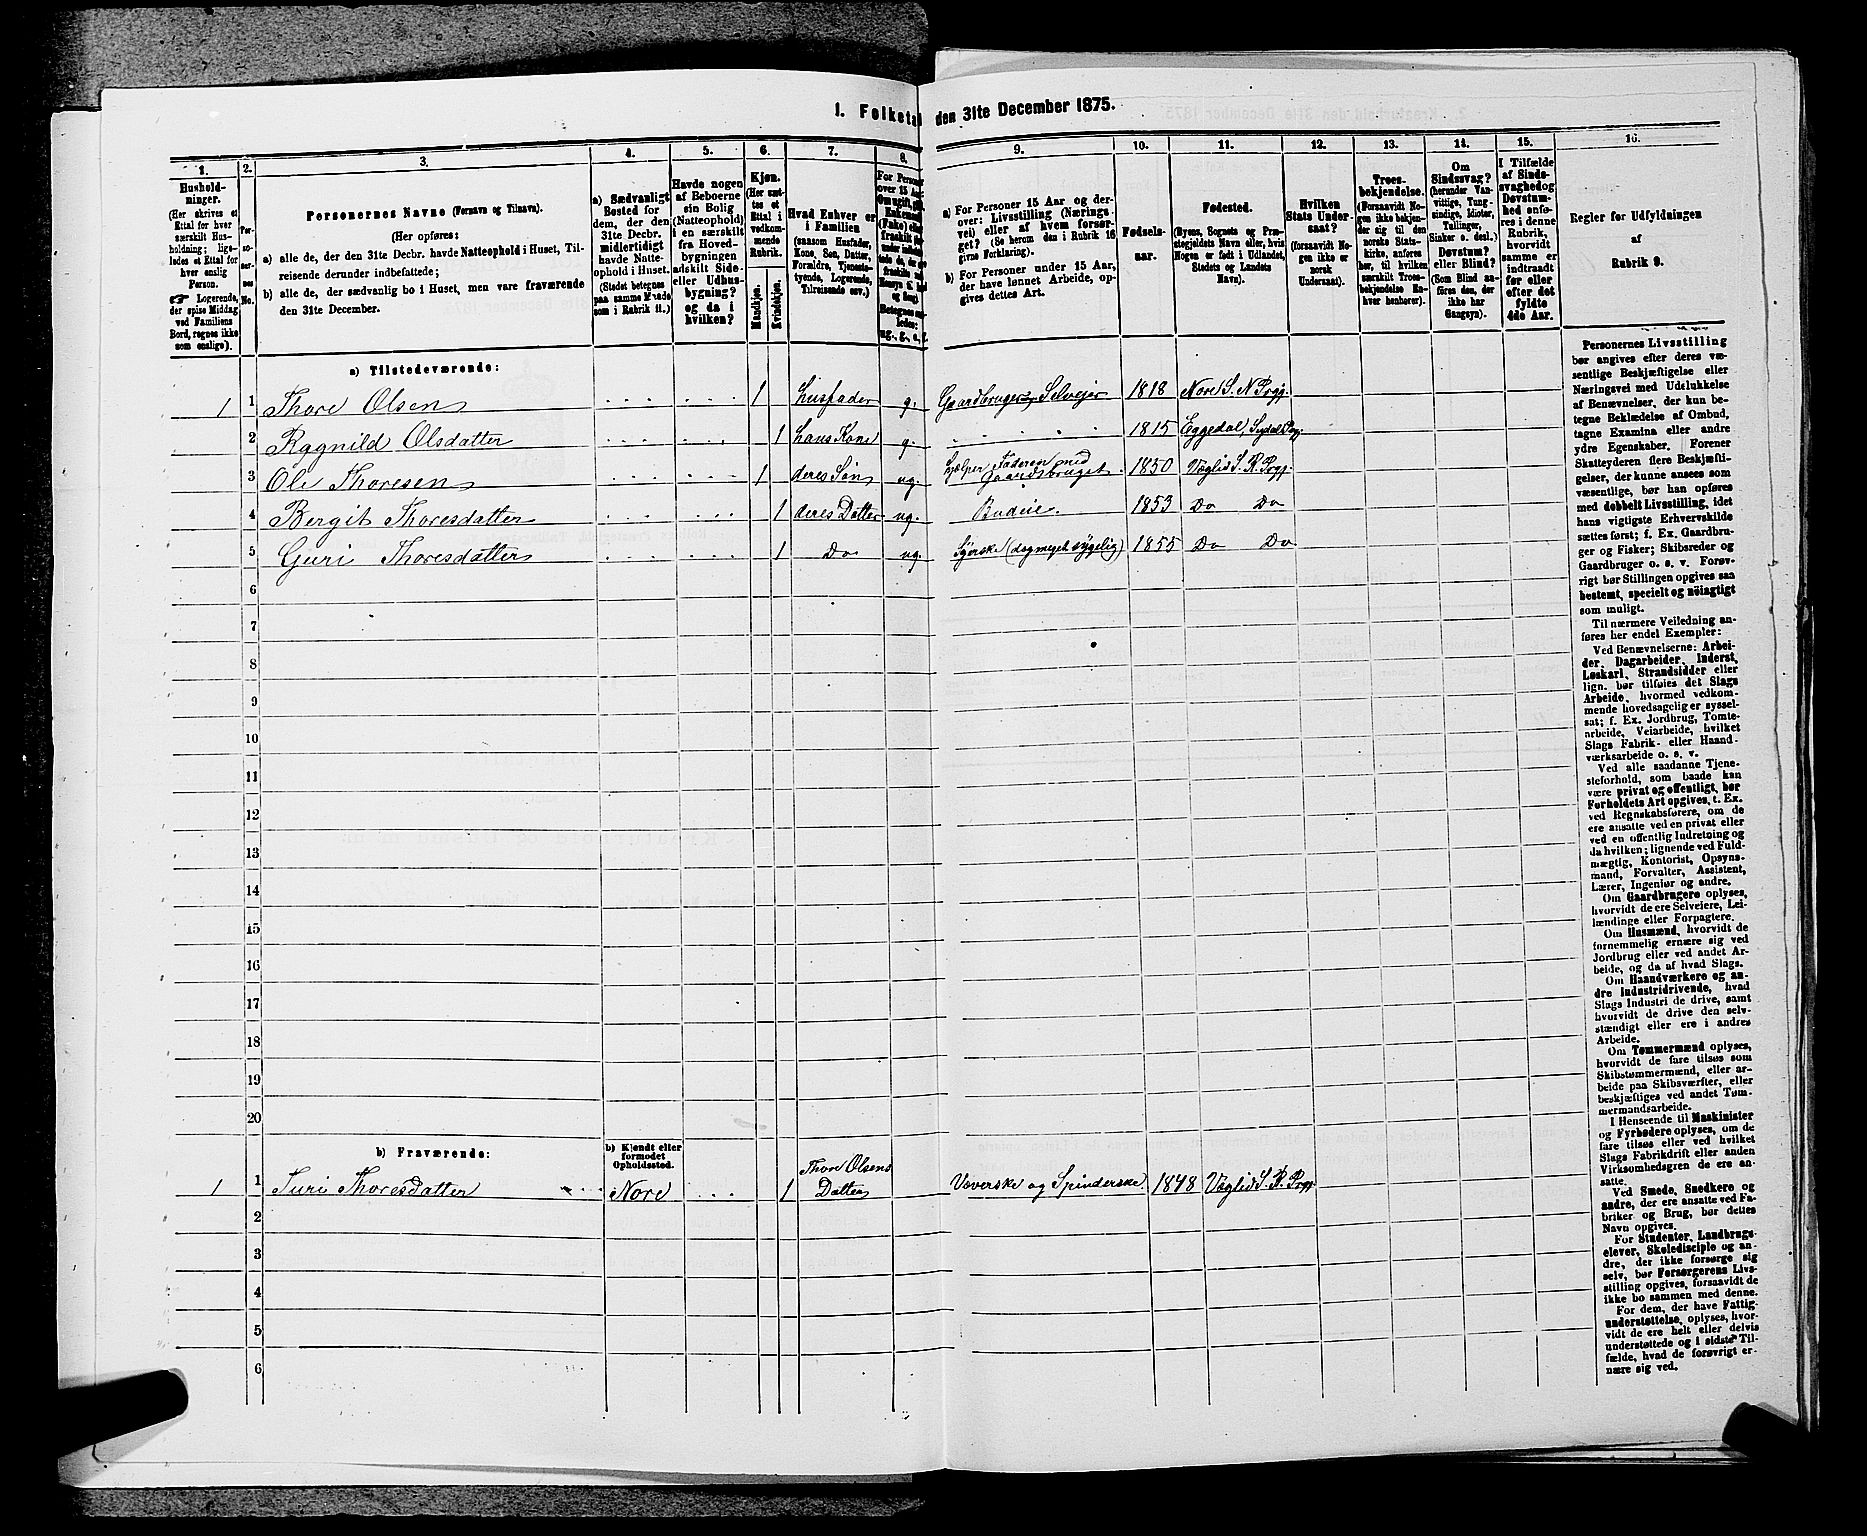 1. Folketal den 31te December 1875.
1.
Hushold-
ninger.
(Her skrives et
Ettal for hver
særskilt Hus-
holdning; lige-
ledes et Ettal for
hver enslig
Person.
☞ Logerende,
der spise Middag
ved Familiens
Bord, regnes ikke
som enslige).
2.
Per-
so-
ner-
nes
No.
3.
Personernes Navne (Fornavn og Tilnavn).
(Her opføres:
a) alle de, der den 31te Decbr. havde Natteophold i Huset, Til-
reisende derunder indbefattede;
b) alle de, der sædvanlig bo i Huset, men vare fraværende
den 31te December.
4.
a) Sædvanligt
Bosted for
dem, der den
31te Decbr.
midlertidigt
havde Natte-
ophold i Huset.
(Stedet betegnes
paa samme Maade
som i Rubrik 11.)
5.
Havde nogen
af Beboerne
sin Bolig
(Natteophold)
i en særskilt
fra Hoved-
bygningen
adskilt Side-
eller Udhus-
bygning?
og da i
hvilken?
6.
Kjøn.
(Her sæt-
tes et
Ettal i
vedkom-
mende
Rubrik.
Mandkjøn.
Kvindekjøn.
7.
Hvad Enhver er
i Familien
(saasom Husfader,
Kone, Søn, Datter,
Forældre, Tjeneste-
tyende, Logerende,
Tilreisende osv.)
8.
9.
a) For Personer 15 Aar og der-
over: Livsstilling (Nærings-
vei) eller af hvem forsør-
get? (Se herom den i Rubrik 16
givne Forklaring).
b) For Personer under 15 Aar,
der have lønnet Arbeide, op-
gives dettes Art.
10.
Fødsels-
aar.
11.
Fødested.
(Byens, Sognets og Præ-
stegjeldets Navn eller, hvis
Nogen er født i Udlandet,
Stedets og Landets
Navn).
12.
Hvilken
Stats Under-
saat?
(forsaavidt No-
gen ikke er
norsk
Undersaat).
13.
Troes-
bekjendelse.
(Forsaavidt No-
gen ikke bekjen-
der sig til den
norske Stats-
kirke, anføres
her, til hvilken
særskilt Troes-
bekjendelse En-
hver henhører).
14.
Om
Sindssvag?
(herunder Van-
vittige, Tung-
sindige, Idioter,
Tullinger,
Sinker o. desl.)
Døvstum?
eller Blind?
(Som Blind an-
føres den, der
ikke har
Gangsyn).
15.
I Tilfælde
af Sinds-
svaghed og
Døvstum-
hed anfø-
res i denne
Rubrik,
hvorvidt
samme er
indtraadt
før eller
efter det
fyldte
4de Aar.
16.
Regler for Udfyldningen
af
Rubrik 9.
a) Tilstedeværende:
1 1 Thore Olsen 1 Husfader g. Gaardbruger, Selveier 1818 Nore S. N Prgj.
2 Ragnild Olsdatter 1 hans Kone g. 1815 Eggedal, Sigdal Prgj.
3 Ole Thoresen 1 deres Søn ug. hjelper Faderen med Gaardsbruget. 1850 Væglid S. R. Prgj.
4 Bergit Thoresdatter 1 deres Datter ug. Budeie. 1853 Do Do
5 Guri Thoresdatter 1 Do ug. Syerske (dog meget sygelig) 1855 Do Do
6
7
8
9
10
11
12
13
14
15
16
17
18
19
20
b) Fraværende:
b) Kjendt eller
formodet
Opholdssted.
1 1 Turi Thoresdatter Nore 1 Thore Olsens Datter Væverske og Spinderske. 1848 Væglid S. R. Prgj.
2
3
4
5
6
Personernes Livsstilling
bør angives efter deres væ-
sentlige Beskjæftigelse eller
Næringsvei med Udelukkelse
af Benævnelser, der kun be-
tegne Beklædelse af Ombud,
tagne Examina eller andre
ydre Egenskaber. Forener
Skatteyderen flere Beskjæfti-
gelser, der kunne ansees som
væsentlige, bør han opføres
med dobbelt Livsstilling, idet
hans vigtigste Erhvervskilde
sættes først; f. Ex. Gaardbru-
ger og Fisker; Skibsreder og
Gaardbruger o. s. v. Forøv-
rigt bør Stillingen opgives saa
bestemt, specielt og nöiagtigt
som muligt.
Til nærmere Veiledning an-
føres her endel Exempler:
Ved Benævnelserne: Arbei-
der, Dagarbeider, Inderst,
Løskarl, Strandsidder eller
lign. bør tilføies det Slags
Arbeide, hvormed vedkom-
mende hovedsagelig er syssel-
sat; f. Ex. Jordbrug, Tomte-
arbeide, Veiarbeide, hvilket
Slags Fabrik- eller Haand-
værksarbeide o. s. v.
Ved alle saadanne Tjene-
steforhold, som baade kan
være privat og offentligt, bør
Forholdets Art opgives, t. Ex.
ved Regnskabsførere, om de
ere ansatte ved en privat eller
ved en offentlig Indretning og
da hvilken; lignende ved Fuld-
mægtig, Kontorist, Opsyns-
mand, Forvalter, Assistent,
Lærer, Ingeniør og andre.
Om Gaardbrugere oplyses,
hvorvidt de ere Selveiere, Lei-
lændinge eller Forpagtere.
Om Husmænd, hvorvidt de
fornemmelig ernære sig ved
Jordbrug eller ved andet Ar-
beide, og da af hvad Slags.
Om Haandværkere og an-
dre Industridrivende, hvad
Slags Industri de drive, samt
hvorvidt de drive den selv-
stændigt eller ere i andres
Arbeide.
Om Tømmermænd oplyses,
hvorvidt de fare tilsøs som
Skibstømmermænd, eller ar-
beide paa Skibsværfter, eller
beskjæftiges ved andet Tøm-
mermandsarbeide.
I Henseende til Maskinister
og Fyrbødere oplyses, om de
fare tilsøs eller ved hvilket
Slags Fabrikdrift eller anden
Virksomhedsgren de ere an-
satte.
Ved Smede, Snedkere og
andre, der ere ansatte ved Fa-
briker og Brug, bør dettes
Navn opgives.
For Studenter, Landbrugs-
elever, Skoledisciple og an-
dre, der ikke forsørge sig
selv, bør Forsørgerens Livs-
stilling opgives, forsaavidt de
ikke bo sammen med denne.
For dem, der have Fattig-
understøttelse, oplyses, hvor-
vidt de ere helt eller delvis
understøttede og i sidste Til-
fælde, hvad de forøvrigt er-
nære sig ved.